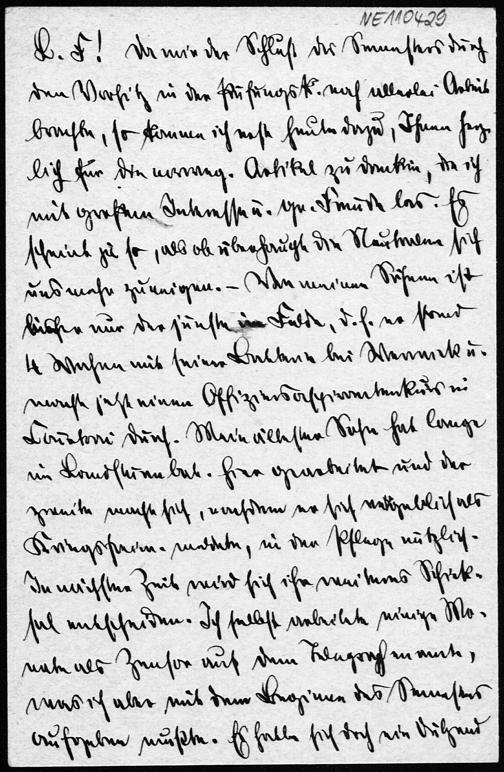 NE110429
L. F! Da mir der Schluß des Semesters durch
den Vorsitz in der Prüfungsk. noch allerlei Arbeit
brachte, so komme ich erst heute dazu, Ihnen herz-
lich für die norweg. Artikel zu danken, die ich
mit großem Interesse u. gr. Freude las. Es
scheint ja so, als ob überhaupt die Neutralen sich
uns mehr zuneigen. – Von meinen Söhnen ist
bisher nur der jüngste im Felde, d. h. er stand
4 Wochen mit seiner Batterie bei Wervick u.
macht jetzt einen Offiziersaspirantenkurs in
Courtrai durch. Mein ältester Sohn hat lange
im Landsturmbat. hier gearbeitet und der
zweite macht sich, nachdem er sich vergeblich als
Kriegsfreiw. meldete, in der Pflege nützlich.
In nächster Zeit wird sich ihr weiteres Schick-
sal entscheiden. Ich selbst arbeitete einige Mo-
nate als Zensor auf dem Telegraphenamte,
was ich aber mit dem Beginne des Semesters
aufgeben mußte. Es hatte sich doch ein Dutzend